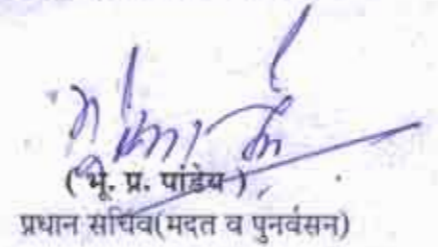 ( भू. प्र. पांडेय )
प्रधान सचिव(मदत व पुनर्वसन)